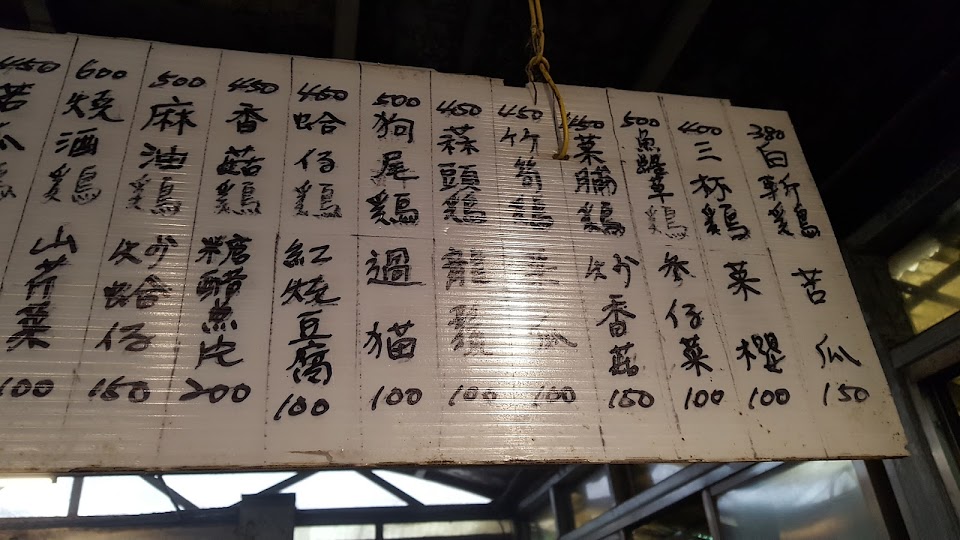 380 白斬鷄
400 三杯鷄
500 魚腥草鷄
450 菜脯鷄
450 竹筍鷄
450 蒜頭鷄
500 狗尾鷄
450 蛤仔鷄
450 香菇鷄
500 麻油鷄
600 燒酒鷄
450 苦瓜鷄
苦瓜 150
菜櫻 100
參仔菜 100
炒香菇 150
瓜 100
龍鬚 100
過猫 100
紅燒豆腐 100
糖醋魚 200
炒蛤仔 150
山芹菜 100